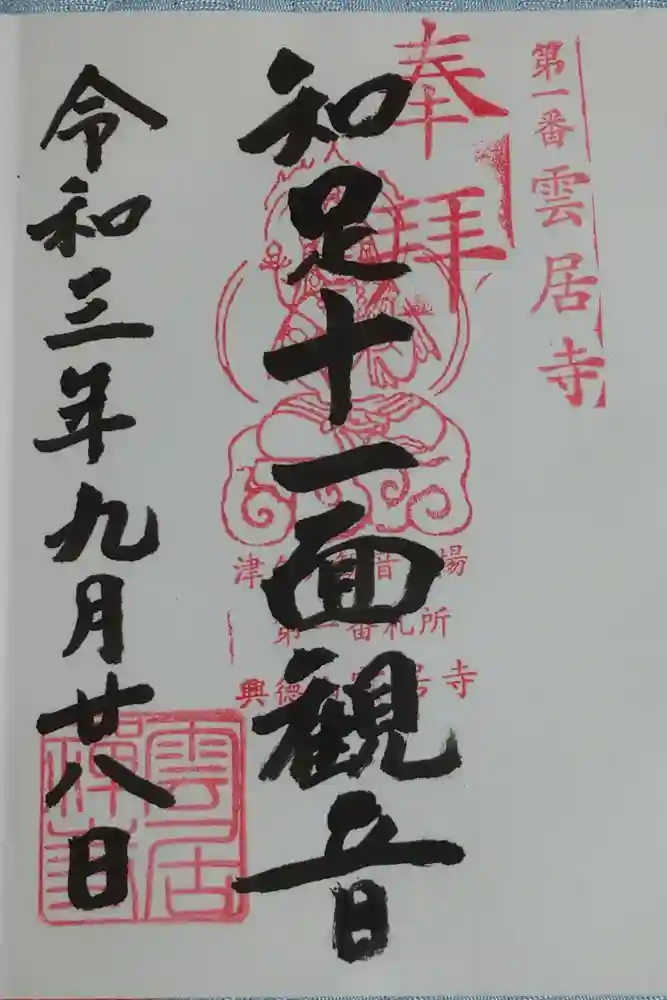 第一番 雲居寺
奉拝
知足十一面観音
津 音 場
第一番札所
興徳 居寺
令和三年九月廿八日
雲居禅寺